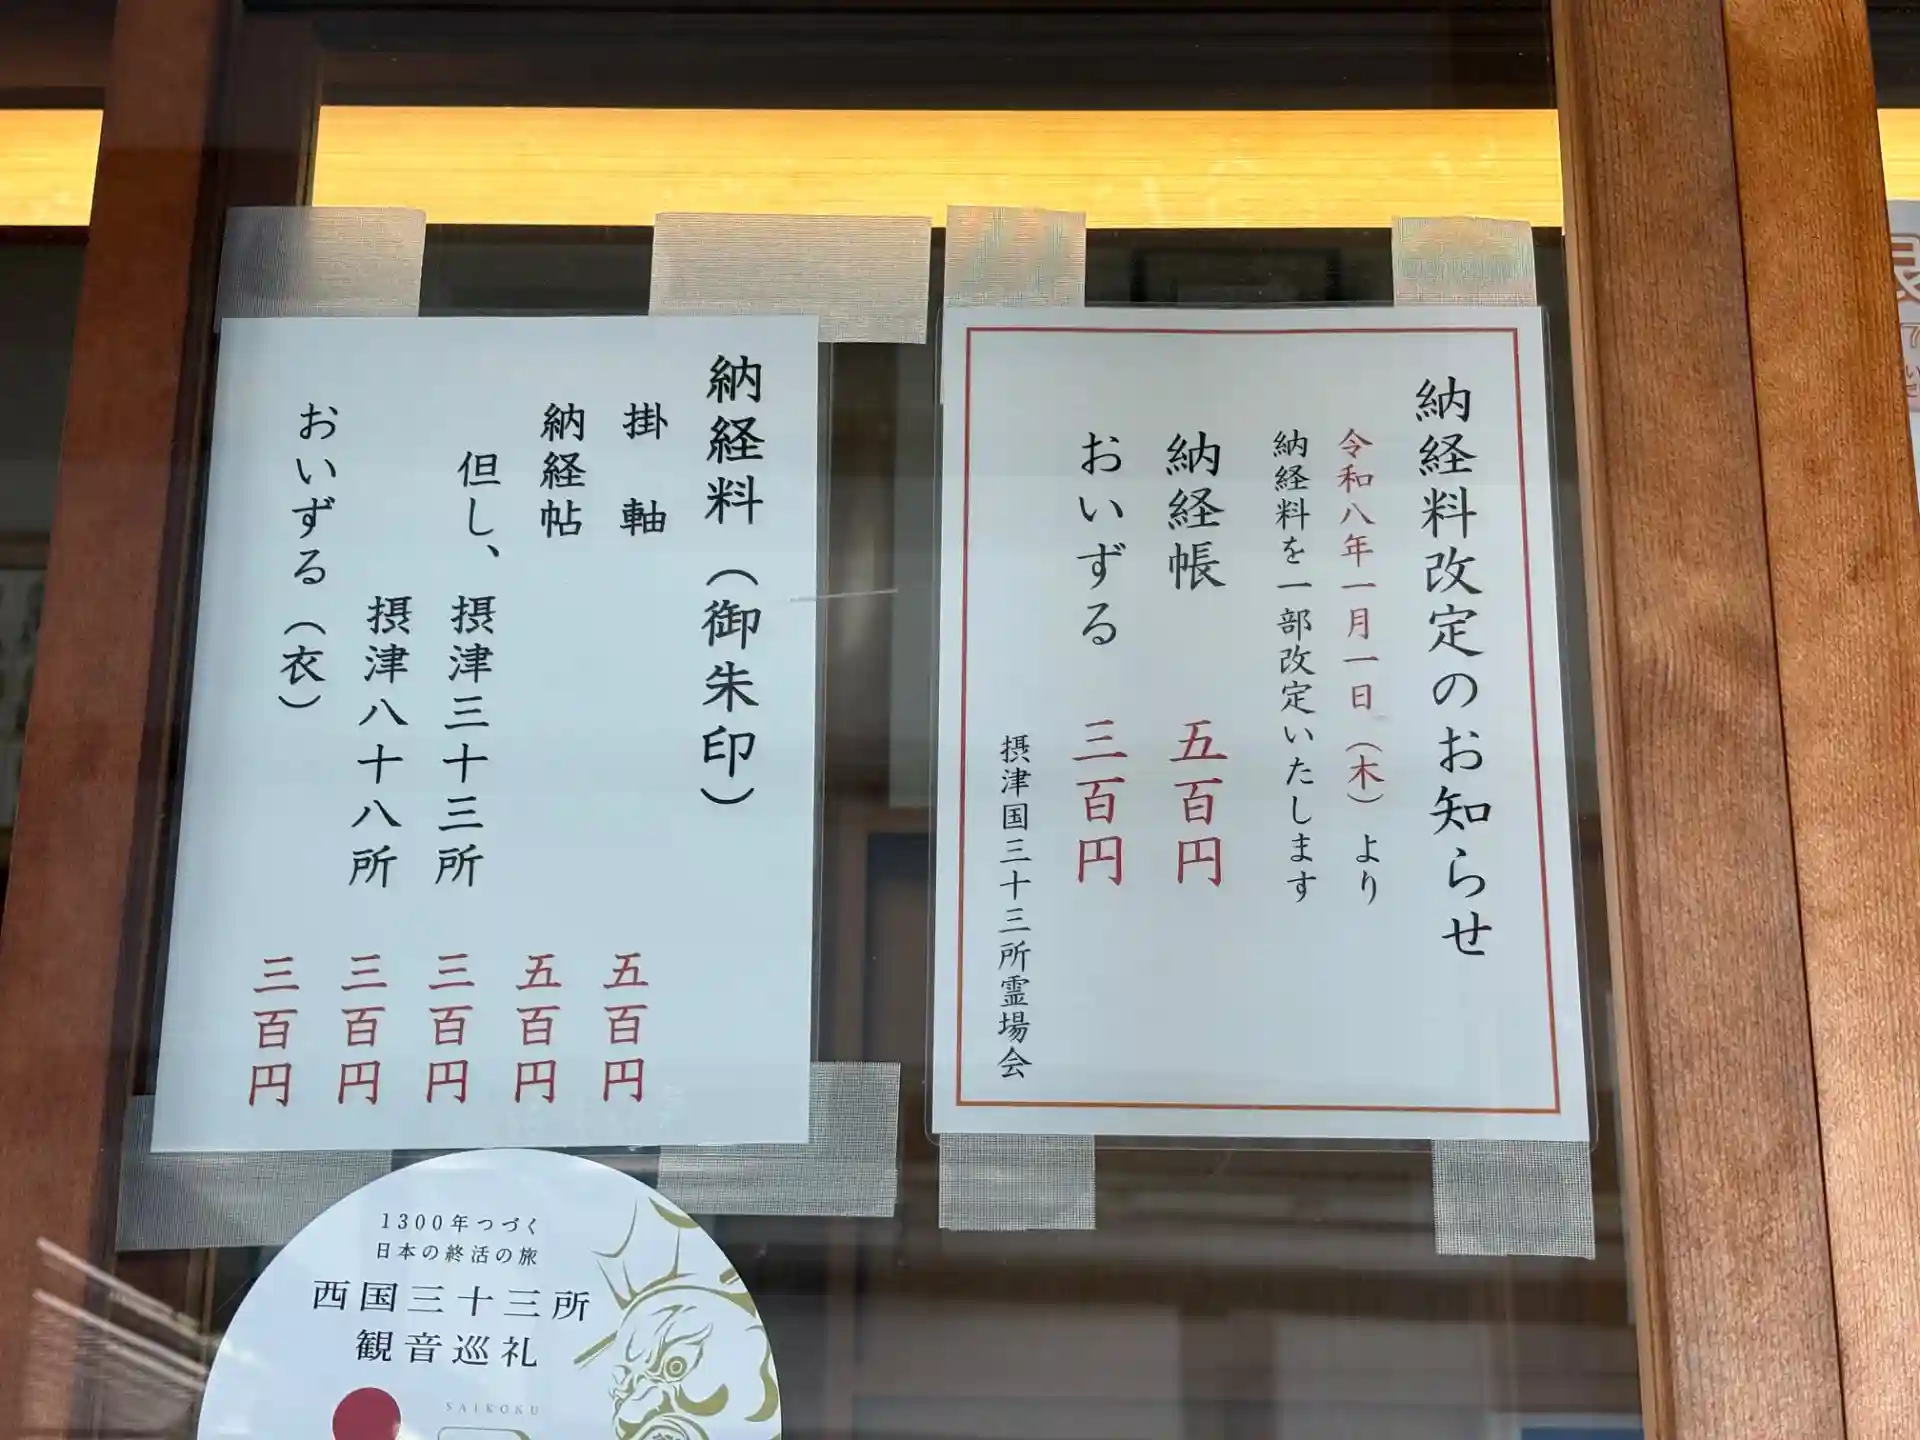 納経料改定のお知らせ
令和八年一月一日（木）より
納経料を一部改定いたします
納経帳 五百円
おいずる 三百円
摂津国三十三所霊場会
納経料（御朱印）
掛軸 五百円
納経帖 五百円
但し、摂津三十三所 三百円
摂津八十八所 三百円
おいずる（衣） 三百円
1300年つづく
日本の終活の旅
西国三十三所
観音巡礼
SAIKOKU